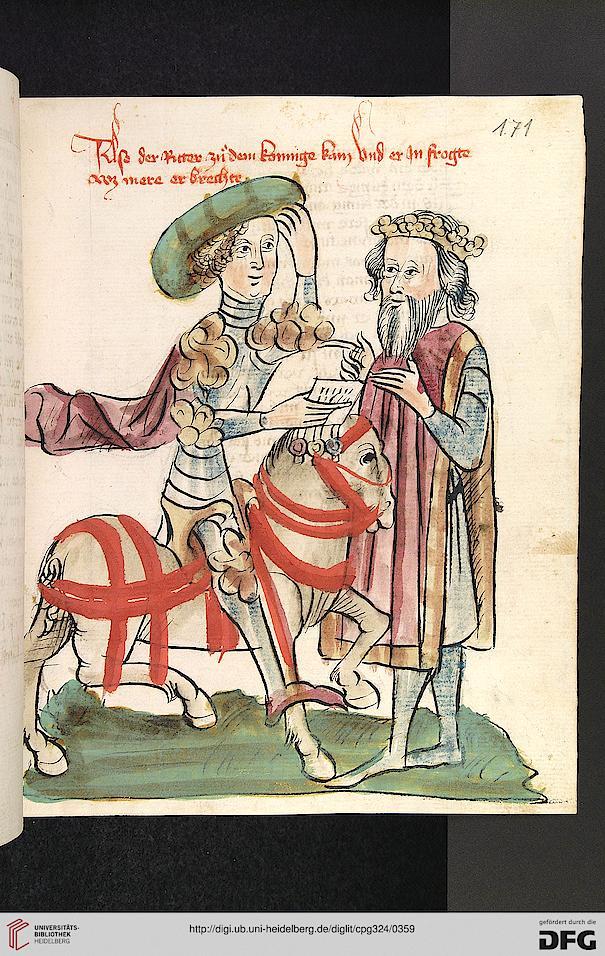 171
Also der Ritter zu dem konnige kam und er in frogte
waz mere er brechte
UNIVERSITÄTS-
BIBLIOTHEK
HEIDELBERG
http://digi.ub.uni-heidelberg.de/diglit/cpg324/0359
gefördert durch die
DFG